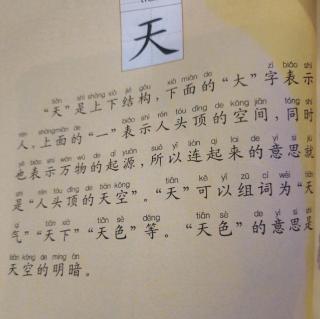 天
tiān shì shàng xià jié gòu xià miàn de zì biǎo shì
“天”是上下结构，下面的“大”字表示
rén shàngmiàn de biǎo shì rén tóu dǐng de kōng jiān tóng shí
人，上面的“一”表示人头顶的空间，同时
yě biǎo shì wàn wù de qǐ yuán suǒ yǐ lián qǐ lai de yì si jiù
也表示万物的起源，所以连起来的意思就
shì rén tóu dǐng de tiān kōng tiān kě yǐ zǔ cí wéi tiān
是“人头顶的天空”。“天”可以组词为“天
qì tiān xià tiān sè děng tiān sè de yì si shì
气”“天下”“天色”等。“天色”的意思是
tiān kōng de míng àn
天空的明暗。